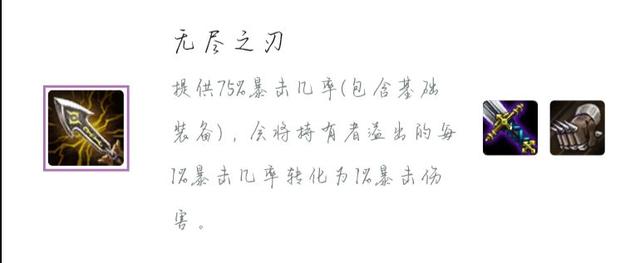 无尽之刃
提供75%暴击几率(包含基础
装备)，会将持有者溢出的每
1%暴击几率转化为1%暴击伤
害。